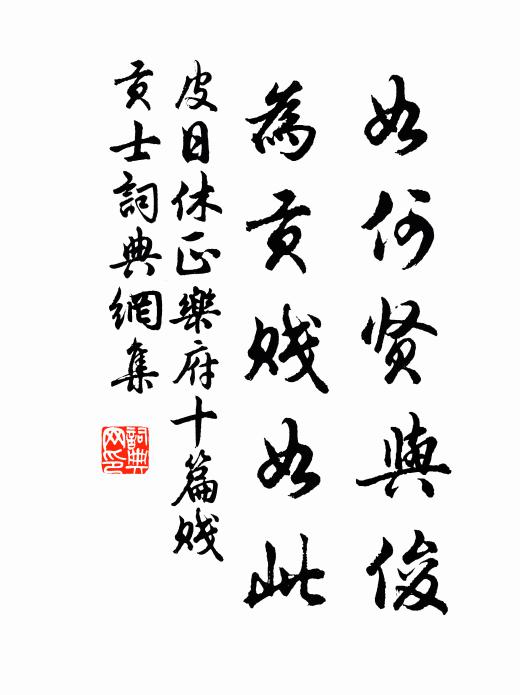 如何贤與俊
為貢賤如此
皮日休正樂府十篇賤
貢士詞典網集
詞典網印